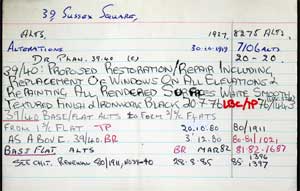 39 SUSSEX SQUARE,
ALTS. 1927. 8275 ALTS.
ALTERATIONS 30.10.1969 710 ALTS
DR PHAN. 39-40 (c) 20-20.
39/40: PROPOSED RESTORATION/REPAIR INCLUDING
REPLACEMENT OF WINDOWS ON ALL ELEVATIONS &
REPAINTING ALL RENDERED SURFACES WHITE SMOOTH
TEXTURED FINISH & IRONWORK BLACK 20.7.76 LBC/TP 76/
39/40 BASE/FLAT ALTS TO FORM FLATS
FROM FLAT TP 20.10.80 80/1911
AS ABOVE 39/40. BR 3.12.80 80-51/1021
BASE FLAT ALTS BR MAR 82 81.82.1687
SEE CHIT. RENEWAL 80/1911, 28-8-85 85 1396
1397